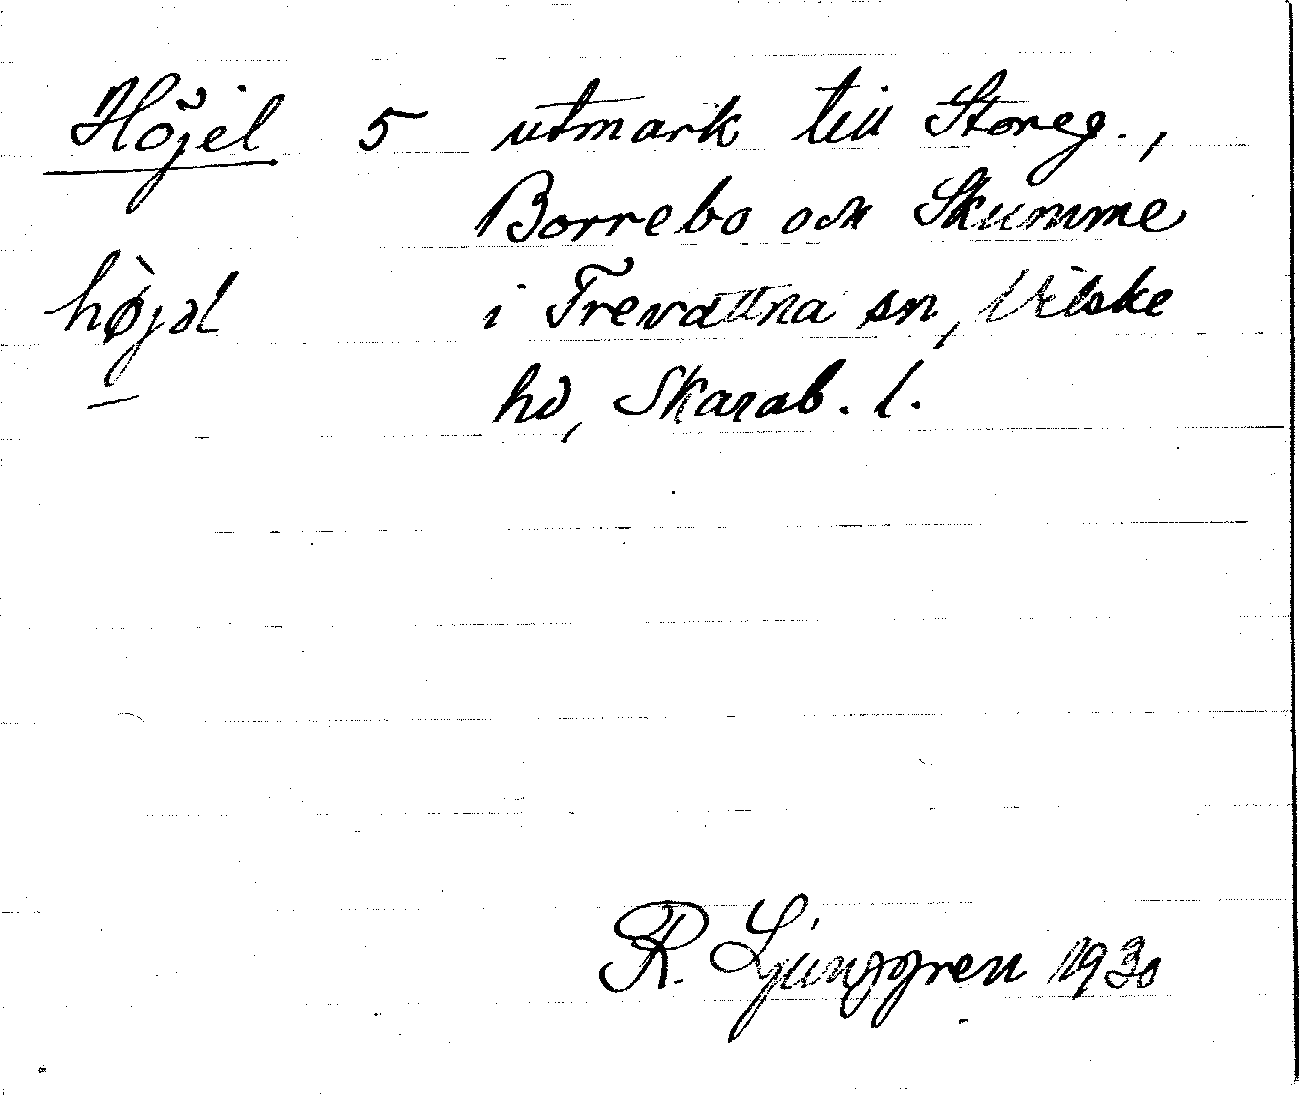 Höjel 5 utmark till Storeg.,
Borrebo och Skumme
højəl i Trevattna sn, Vilske
hd, Skarab. l.
R. Ljunggren 1930